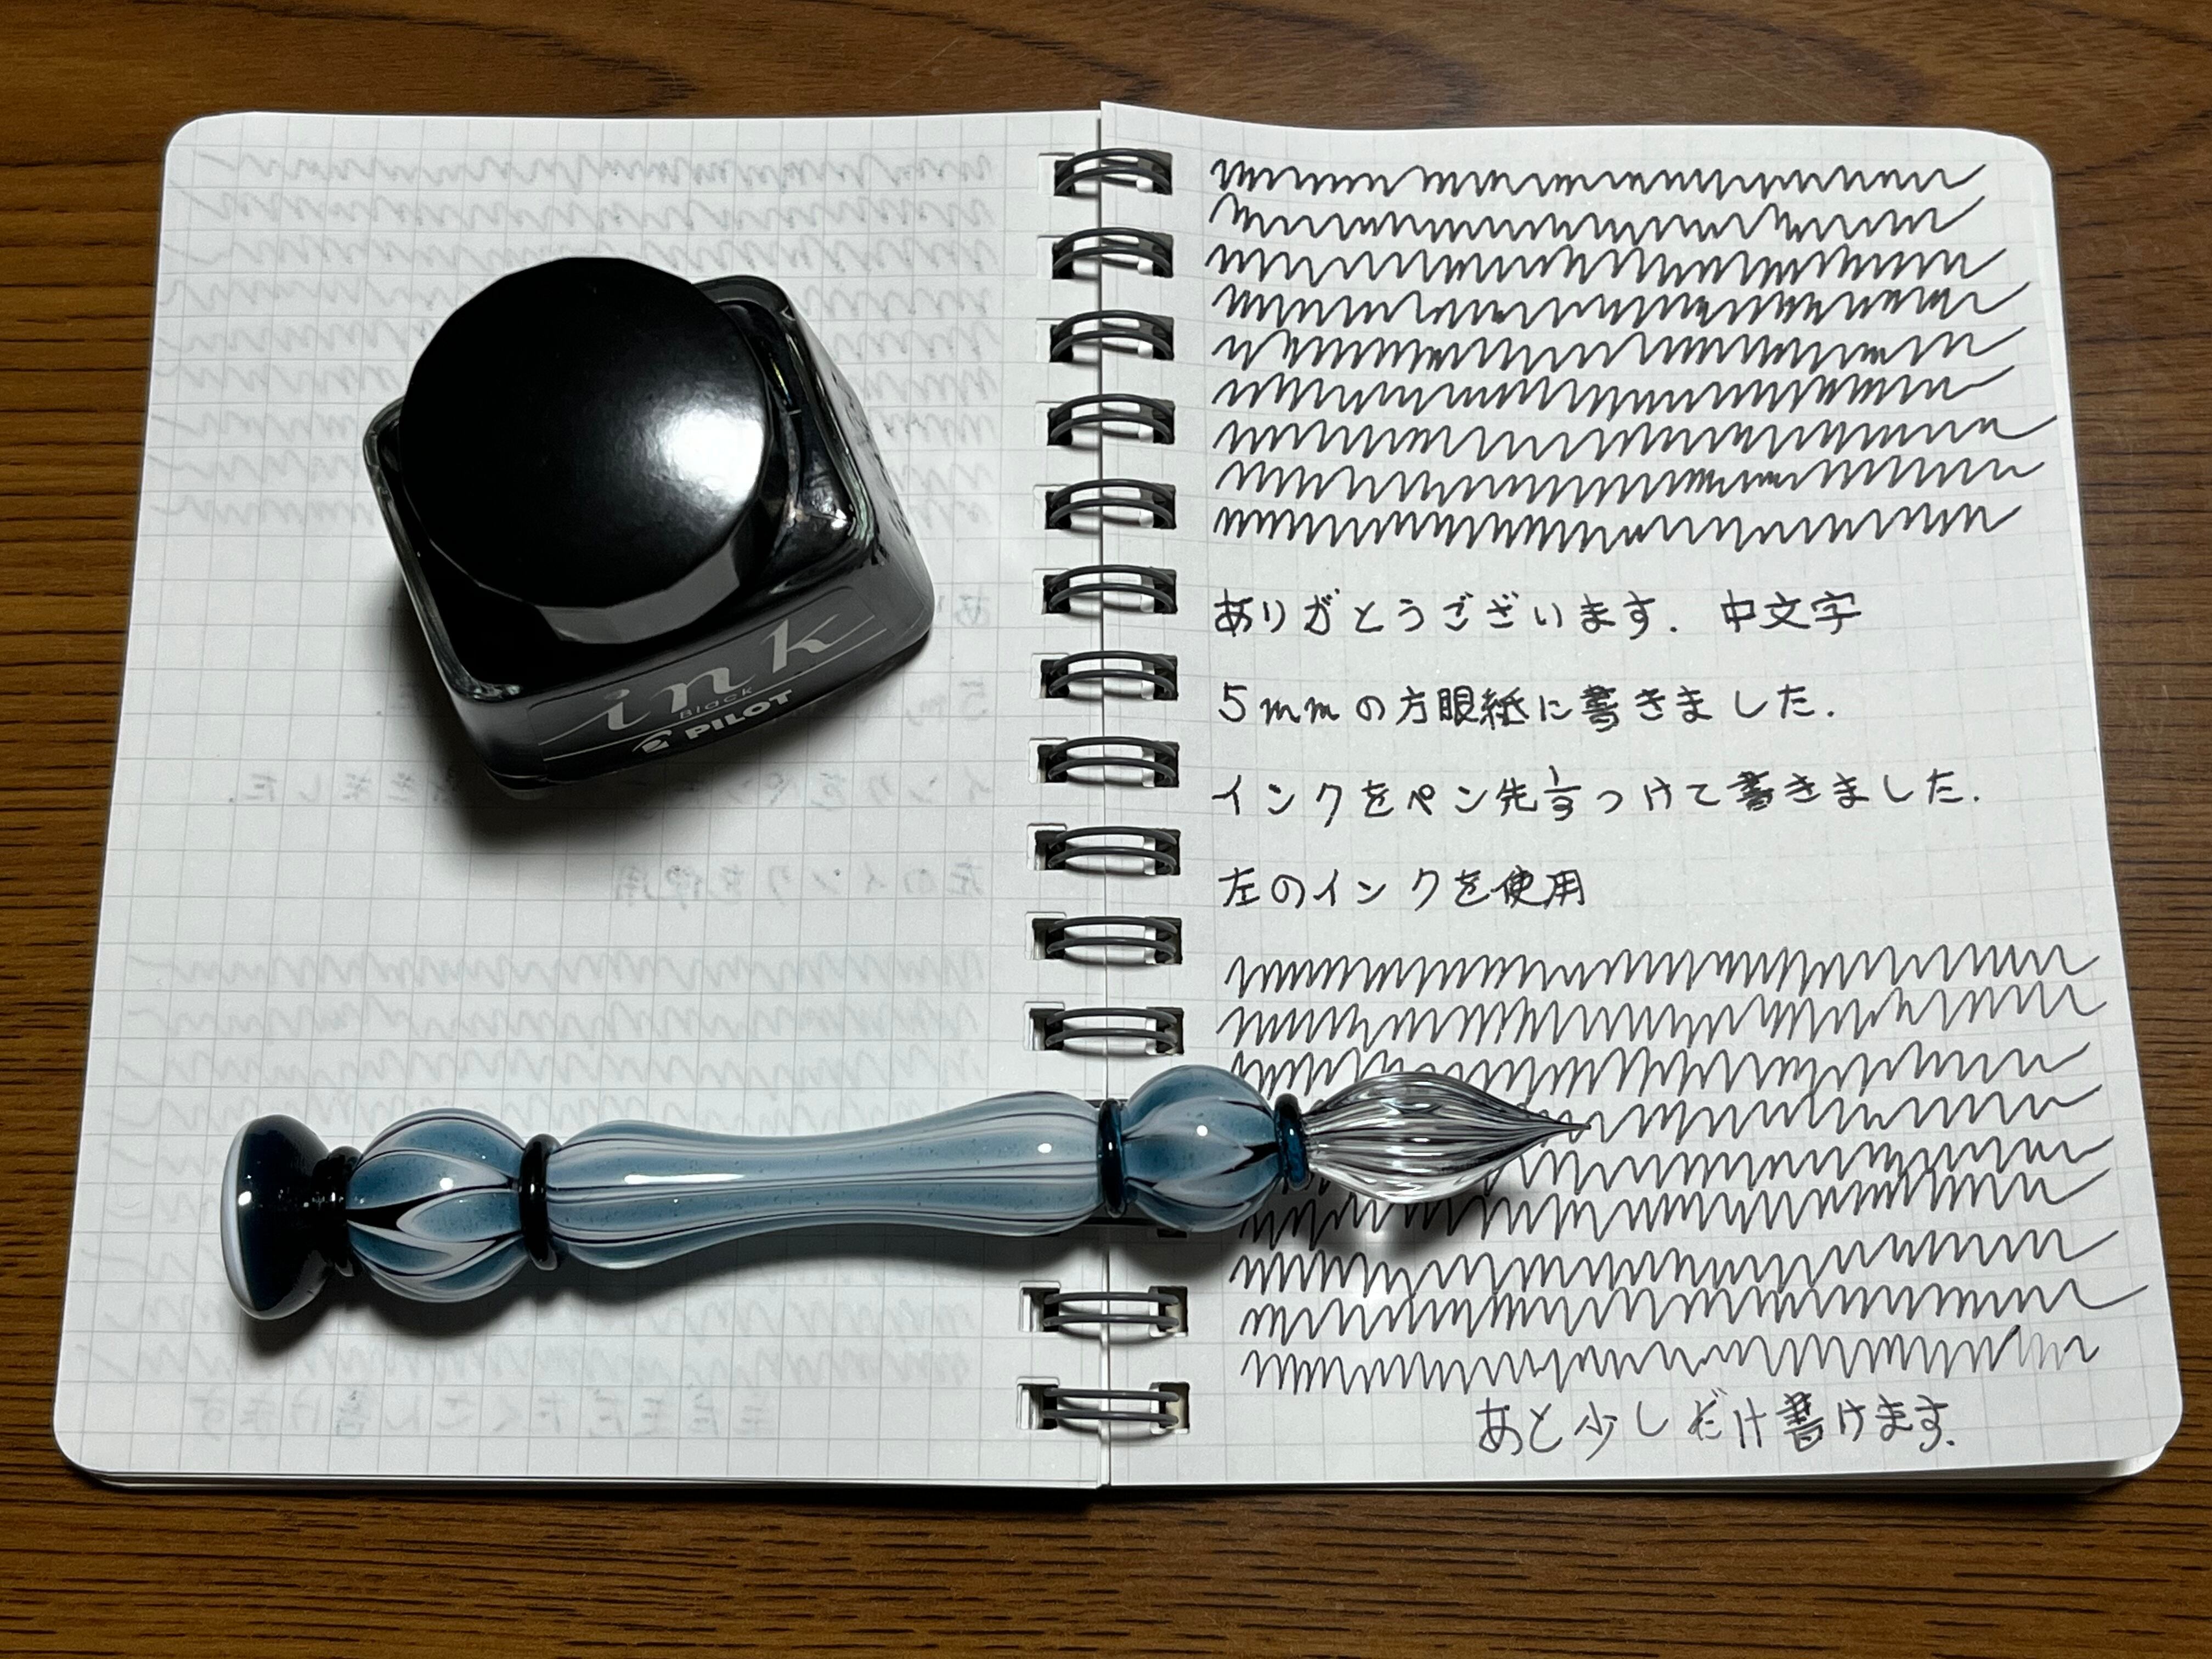 ink
Black
PILOT
ありがとうございます. 中文字
5mmの方眼紙に書きました.
インクをペン先⅓つけて書きました.
左のインクを使用
あと少しだけ書けます.